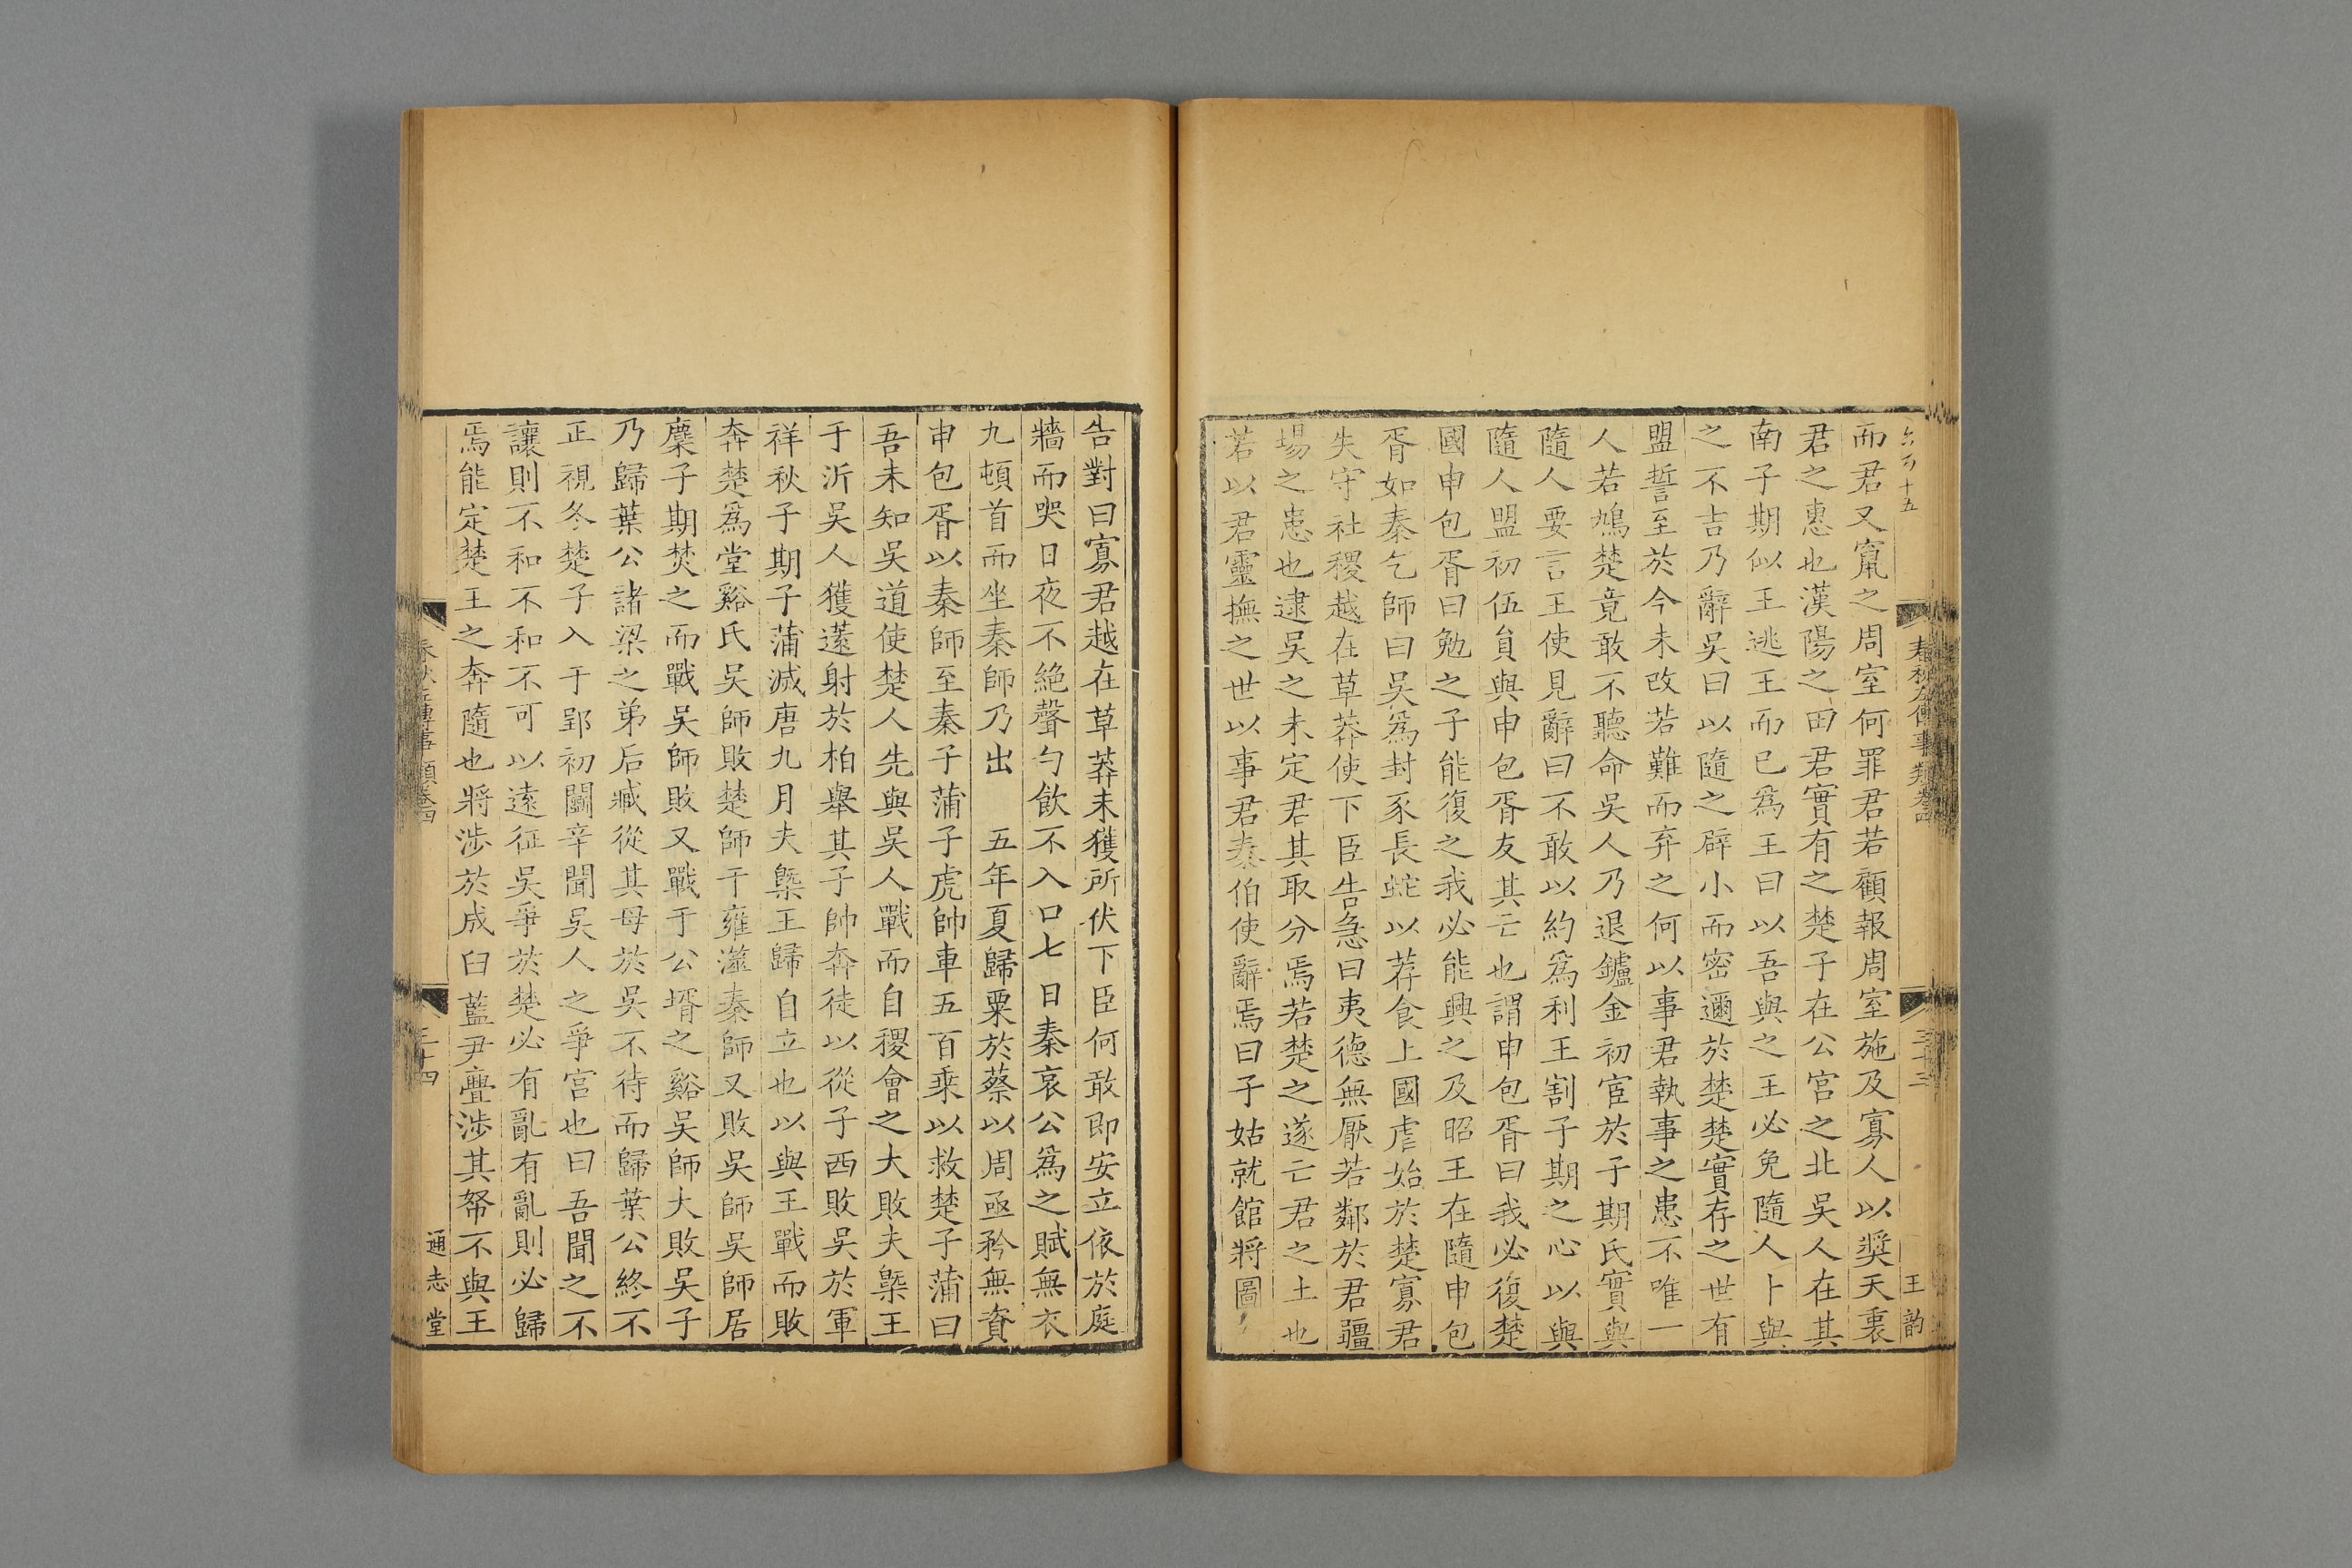 而君又竄之周室何罪君若顧報周室施及寡人以奬天衷
君之惠也漢陽之田君實有之楚子在公宮之北吳人在其
南子期似王逃王而已爲王曰以吾與之王必免隨人卜與
之不吉乃辭吳曰以隨之辟小而密邇於楚楚實存之世有
盟誓至於今未改若難而弃之何以事君執事之患不唯一
人若鳩楚竟敢不聽命吳人乃退鑪金初宦於子期氏實與
隨人要言王使見辭曰不敢以約爲利王割子期之心以與
隨人盟初伍貟與申包胥友其亡也謂申包胥曰我必復楚
國申包胥曰勉之子能復之我必能興之及昭王在隨申包
胥如秦乞師曰吳爲封豕長蛇以荐食上國虐始於楚寡君
失守社稷越在草莽使下臣告急曰夷德無厭若鄰於君疆
場之患也逮吳之未定君其取分焉若楚之遂亡君之土也
若以君靈撫之世以事君秦伯使辭焉曰子姑就館將圖
告對曰寡君越在草莽未獲所伏下臣何敢即安立依於庭
牆而哭日夜不絶聲勺飲不入口七日秦哀公爲之賦無衣
九頓首而坐秦師乃出　五年夏歸粟於蔡以周亟矜無資
申包胥以秦師至秦子蒲子虎帥車五百乘以救楚子蒲曰
吾未知吳道使楚人先與吳人戰而自稷會之大敗夫槩王
于沂吳人獲薳射於柏舉其子帥奔徒以從子西敗吳於軍
祥秋子期子蒲滅唐九月夫槩王歸自立也以與王戰而敗
奔楚爲堂谿氏吳師敗楚師于雍澨秦師又敗吳師吳師居
麇子期焚之而戰吳師敗又戰于公壻之谿吳師大敗吳子
乃歸葉公諸梁之弟后臧從其母於吳不待而歸葉公終不
正視冬楚子入于郢初鬬辛聞吳人之爭宮也曰吾聞之不
讓則不和不和不可以遠征吳爭於楚必有亂有亂則必歸
焉能定楚王之奔隨也將涉於成臼藍尹亹涉其帑不與王
春秋左傳事類卷四
三十三
王
春秋左傳事類卷四
三十四
通志堂